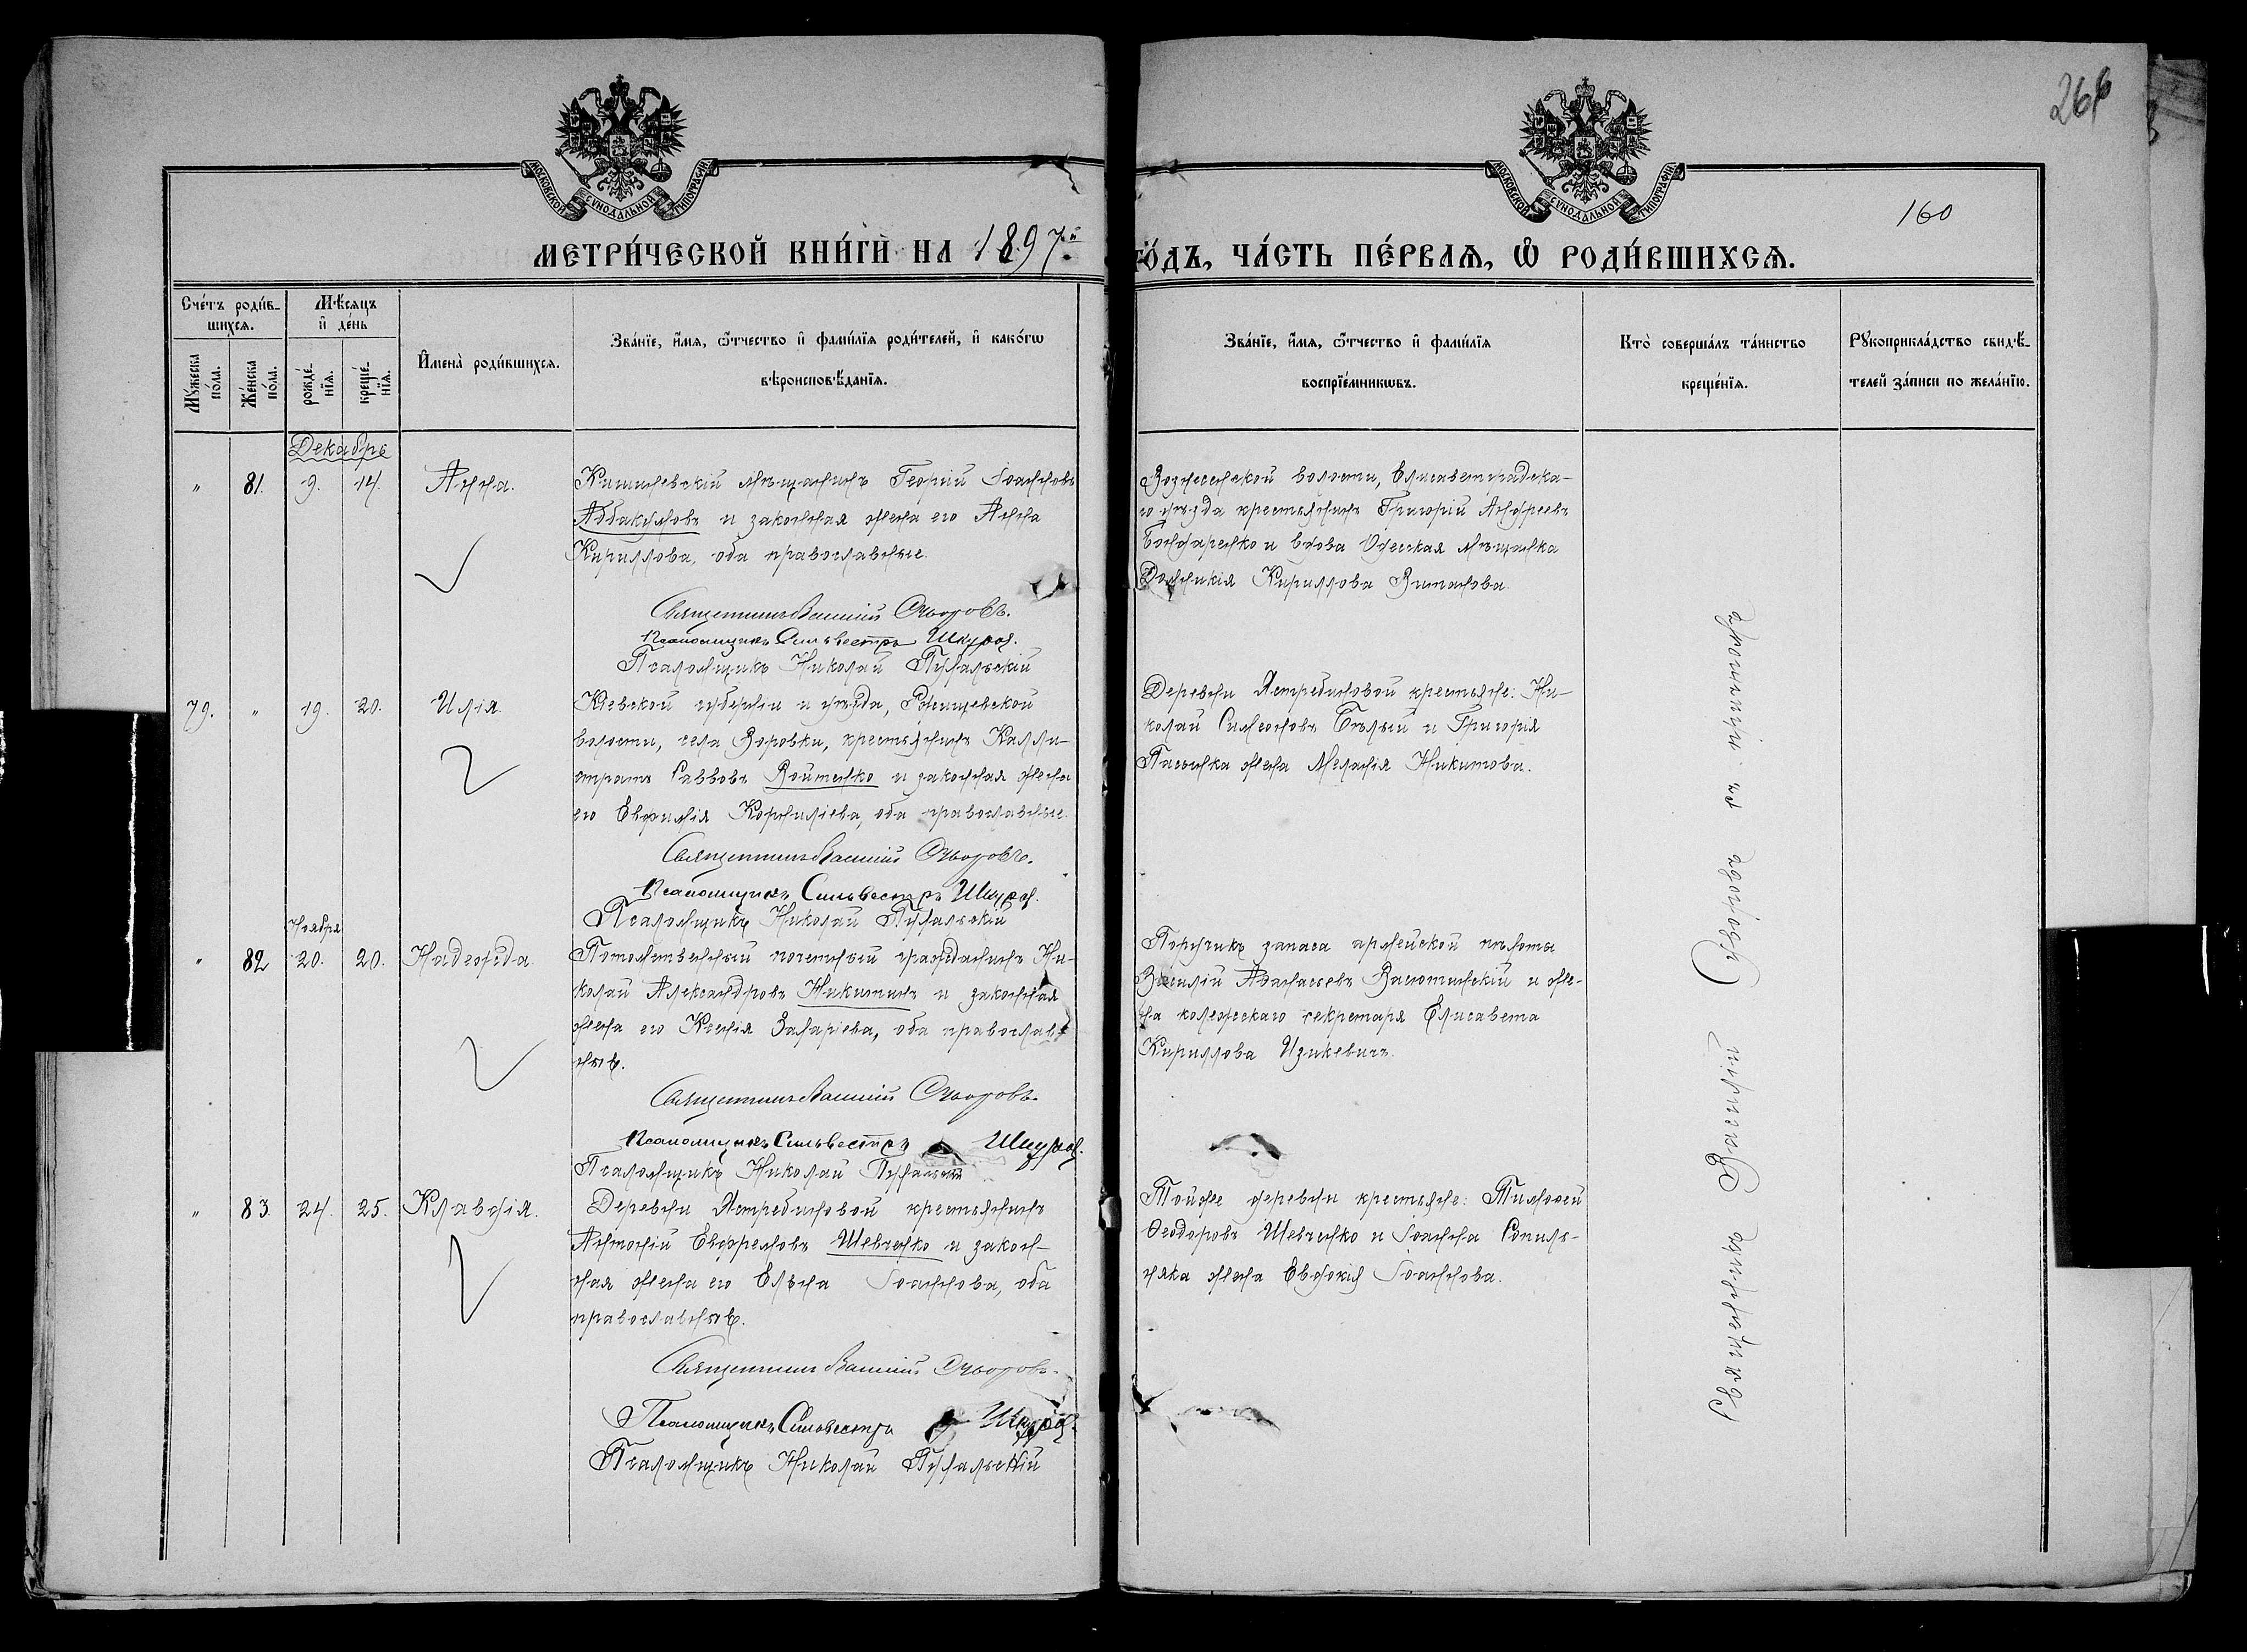 268
160
МОСКОВСКОЙ СУНОДАЛЬНОЙ ТИПОГРАФІИ
МОСКОВСКОЙ СУНОДАЛЬНОЙ ТИПОГРАФІИ
МЕТРИ́ЧЕСКОЙ КНИ́ГИ НА 1897й
ГО́ДЪ, ЧА́СТЬ ПЕ́РВАѦ, Ѡ҆ РОДИ́ВШИХСѦ.
Сче́тъ роди́в-
шихсѧ.
Мꙋ́жеска по́ла.
Же́нска по́ла.
Мѣ́сяцъ
и҆ де́нь
рожде́-
нїѧ.
креще́-
нїѧ.
И҆мена̀ роди́вшихсѧ.
Зва́нїе, и҆́мѧ, ѻ҆́тчество и҆ фами́лїѧ роди́телей, и҆ како́гѡ
вѣроисповѣ́данїѧ.
Зва́нїе, и҆́мѧ, ѻ҆́тчество и҆ фами́лїѧ
воспрїе́мникѡвъ.
Кто̀ соверша́лъ та́инство
креще́нїѧ.
Рꙋкоприкла́дство свидѣ́-
телей за́писи по жела́нїю.
Декабрь
" 81. 9. 14. Анна.
Кишиневскій мѣщанинъ Георгій Іоанновъ
Аввакумовъ и законная жена его Анна
Кириллова, оба православные.
Священникъ Василій
Псаломщикъ Сильвестръ
Псаломщикъ Николай
Вознесенской волости, Елисаветградска-
го уѣзда крестьянинъ Григорій Андреевъ
Бондаренко и вдова Одесская мѣщанка
Домникія Кириллова
79. " 19. 20. Илія.
Кіевской губерніи и уѣзда,
волости, села крестьянинъ Калли-
стратъ Савовъ Войтенко и законная жена
его Евфимія Корниліева, оба православные.
Священникъ Василій
Псаломщикъ Сильвестръ
Псаломщикъ Николай
Деревни Ястребиновой крестьяне: Ни-
колай Симеоновъ Бѣлый и Григорія
жена Меланія Никитова.
Ноября
" 82 20. 20. Надежда.
Потомственный почетный гражданинъ Ни-
колай Александровъ Никитинъ и законная
жена его Ксенія Захаріева, оба православ-
ные.
Священникъ Василій
Псаломщикъ Сильвестръ
Псаломщикъ Николай
Поручикъ запаса армейской пѣхоты
Василій Аѳанасьевъ и же-
на коллежскаго секретаря Елисавета
Кириллова
" 83. 24. 25. Клавдія.
Деревни Ястребиновой крестьянинъ
Антоній Евфремовъ Шевченко и закон-
ная жена его Елена Іоаннова, оба
православные.
Священникъ Василій
Псаломщикъ Сильвестръ
Псаломщикъ Николай
Той же деревни крестьяне: Тимоѳей
Ѳеодоровъ Шевченко и Іоанна
жена Евдокія Іоаннова.
Священникъ Василій